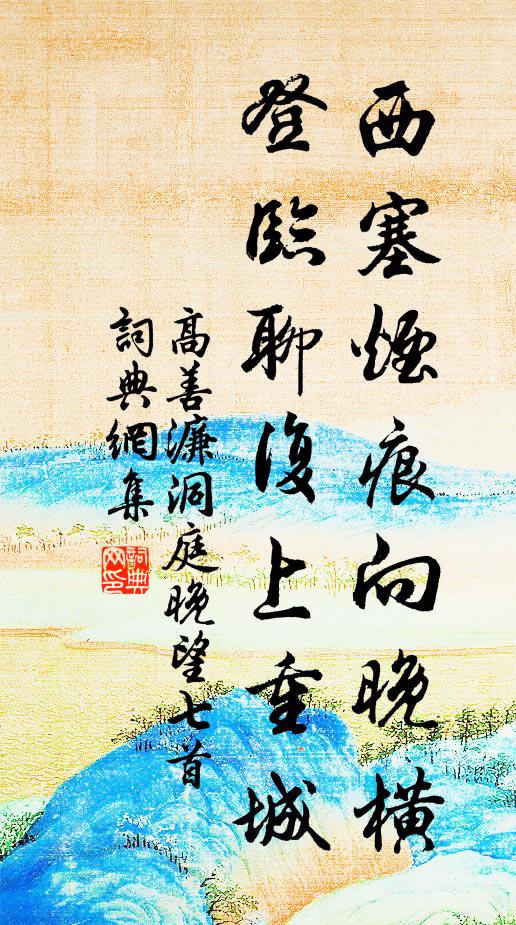 西塞煙痕向晚橫
登臨聊復上重城
高善濂洞庭晚望七首
詞典網集
詞典网印